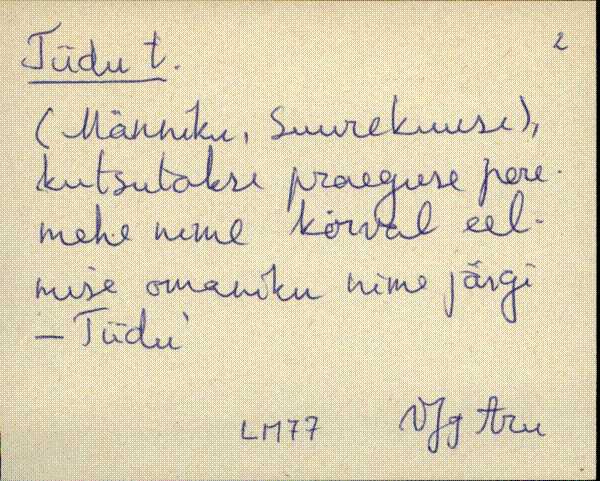 2
Tiidu t.
(Männiku, Suurekuuse),
kutsutakse praeguse pere-
mehe nime kõrval eel-
mise omaniku nime järgi
– Tiidu
LM77 VJg Aru